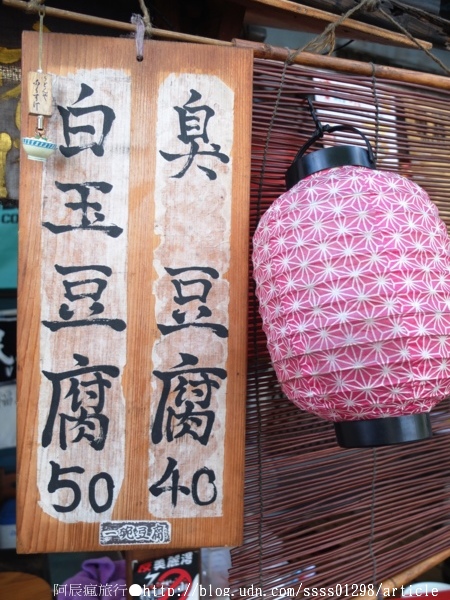 臭豆腐40
白玉豆腐50
一碗豆腐
阿辰瘋旅行●http://blog.udn.com/ssss01298/article